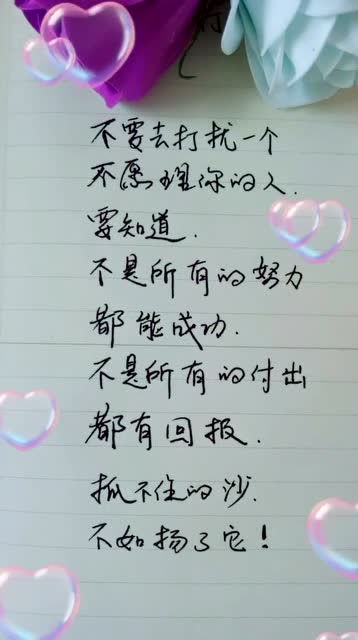 不要去打扰一个
不愿理你的人.
要知道.
不是所有的努力
都能成功.
不是所有的付出
都有回报.
抓不住的沙.
不如扬了它!